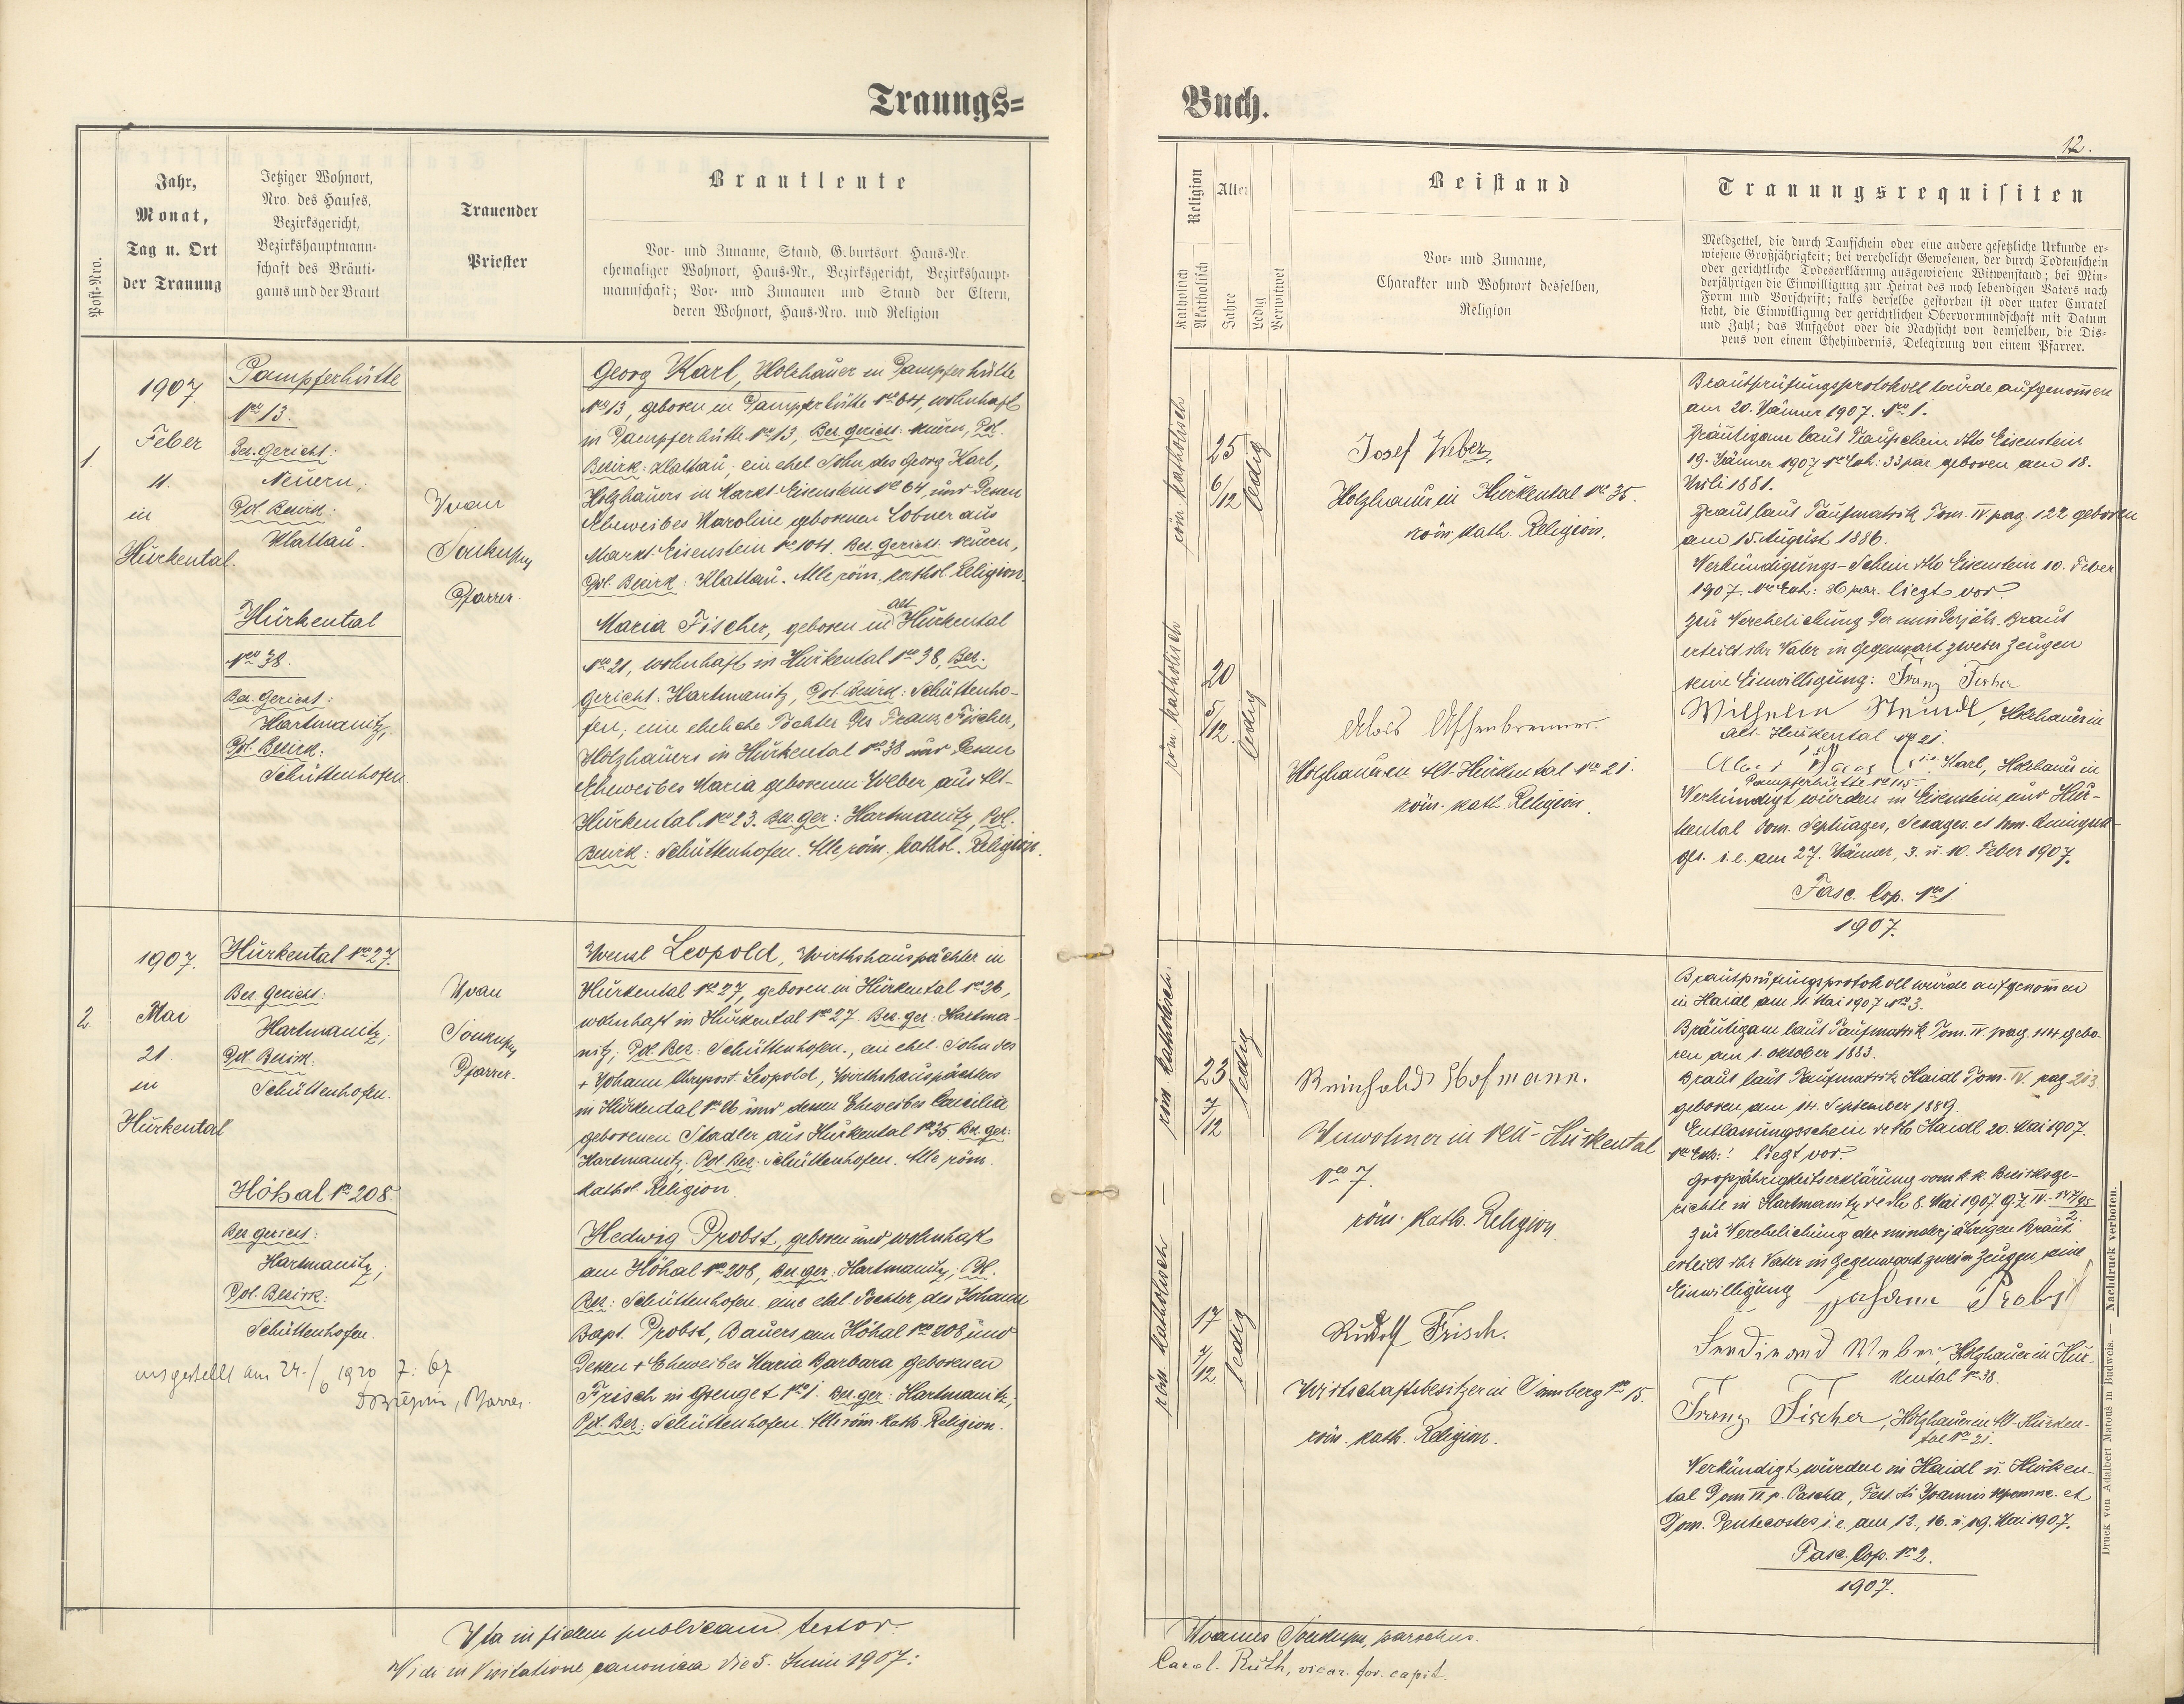 Trauungs=
Buch.
12.
Post-Nro.
Jahr,
Monat,
Tag u. Ort
der Trauung
Jetziger Wohnort,
Nro. des Hauses,
Bezirksgericht,
Bezirkshauptmann-
schaft des Bräuti-
gams und der Braut
Trauender
Priester
Brautleute
Vor- und Zuname, Stand, Geburtsort Haus-Nr.
ehemaliger Wohnort, Haus-Nr., Bezirksgericht, Bezirkshaupt-
mannschaft; Vor- und Zunamen und Stand der Eltern,
deren Wohnort, Haus-Nro. und Religion
Religion
Katholisch
Akatholisch
Alter
Jahre
Ledig
Verwitwet
Beistand
Vor- und Zuname,
Charakter und Wohnort desselben,
Religion
Trauungsrequisiten
Meldzettel, die durch Taufschein oder eine andere gesetzliche Urkunde er-
wiesene Großjährigkeit; bei verehelicht Gewesenen, der durch Todtenschein
oder gerichtliche Todeserklärung ausgewiesene Witwenstand; bei Min-
derjährigen die Einwilligung zur Heirat des noch lebendigen Vaters nach
Form und Vorschrift; falls derselbe gestorben ist oder unter Curatel
steht, die Einwilligung der gerichtlichen Obervormundschaft mit Datum
und Zahl; das Aufgebot oder die Nachsicht von demselben, die Dis-
pens von einem Ehehindernis, Delegirung von einem Pfarrer.
1
1907
Feber
11.
in
Hurkental.
Pampferhütte
Nro 13.
Bez. Gericht:
Neuern;
Pol. Bezirk:
Klattau.
Hurkental
Nro 38.
Bez. Gericht:
Hartmanitz,
Pol. Bezirk:
Schüttenhofen
Ivan
Soukup
Pfarrer.
Georg Karl, Holzhauer in Pampferhütte
Nro 13, geboren in Pampferhütte Nro 64, wohnhaft
in Pampferhütte Nro 13, Bez. gericht: Neuern, Pol.
Bezirk: Klattau; ein ehel. Sohn des Georg Karl,
Holzhauers in Markt Eisenstein Nro 64, und dessen
Eheweibes Karoline geborenen Lobner aus
Markt Eisenstein Nro 104. Bez. Gericht: Neuern,
Pol. Bezirk: Klattau. Alle röm. kathol. Religion.
Maria Fischer, geboren in alt Hurkental
Nro 21, wohnhaft in Hurkental Nro 38, Bez.
gericht: Hartmanitz, Pol. Bezirk: Schüttenho-
fen; eine eheliche Tochter des Franz Fischer,
Holzhauers in Hurkental Nro 38 und dessen
Eheweibes Maria geborenen Weber aus Alt-
Hurkental Nro 23. Bez. ger: Hartmanitz, Pol.
Bezirk: Schüttenhofen. Alle röm. kathol. Religion.
röm. katholisch
25
6/12
ledig
röm. katholisch
20
5/12.
ledig
Josef Weber,
Holzhauer in Hurkental Nro 35.
röm. kath. Religion.
Alois Aschenbrenner.
Holzhauer in Alt-Hurkental Nro 21.
röm. kath. Religion.
Brautprüfungsprotokoll wurde aufgenommen
am 20. Jänner 1907. Nro 1.
Bräutigam laut Taufschein dto Eisenstein
19. Jänner 1907 Nro Exh: 33 par. geboren am 18.
Juli 1881.
Braut laut Taufmatrik Tom. IV pag. 122 geboren
am 15. August 1886.
Verkündigungs-Schein dto Eisenstein 10. Feber
1907. Nro Exh: 86 par. liegt vor.
Zur Verehelichung der minderjähr. Braut
erteilt ihr Vater in Gegenwart zweier Zeugen
seine Einwilligung: Franz Fischer
Wilhelm Steindl, Holzhauer in
Alt-Hurkental Nro 21.
Karl, Holzhauer in
Pampferhütte Nro 115.
Verkündigt wurden in Eisenstein und Hur-
kental Dom. Septuages, Sexages. et Dom. Quinqua-
ges. i. e. am 27. Jänner, 3. u. 10. Feber 1907.
Fasc. Cop. Nro 1
1907.
2
1907.
Mai
21.
in
Hurkental
Hurkental Nro 27.
Bez. Gericht:
Hartmanitz;
Pol. Bezirk:
Schüttenhofen.
Höhal Nro 208
Bez. gericht:
Hartmanitz;
Pol. Bezirk:
Schüttenhofen.
ausgestellt am 24./6 1920 Z: 67.
Pfarrer.
Ivan
Soukup
Pfarrer.
Wenzl Leopold, Wirthshauspächter in
Hurkental Nro 27, geboren in Hurkental Nro 26,
wohnhaft in Hurkental Nro 27. Bez. ger: Hartma-
nitz; Pol. Bez: Schüttenhofen., ein ehel. Sohn des
+ Johann Leopold, Wirthshauspächters
in Hurkental Nro 26 und dessen Eheweibes Cäcilia
geborenen Stadler aus Hurkental Nro 35. Bez. ger:
Hartmanitz; Pol. Bez: Schüttenhofen. Alle röm.
kathol. Religion.
Hedwig Probst, geboren und wohnhaft
am Höhal Nro 208, Bez. ger: Hartmanitz; Pol.
Bez: Schüttenhofen. eine ehel. Tochter des Johann
Bapt. Probst, Bauers am Höhal Nro 208, und
dessen + Eheweibes Maria Barbara geborenen
Frisch in Grenget Nro 1. Bez. ger: Hartmanitz,
Pol. Bez: Schüttenhofen. Alle röm. kath. Religion.
röm. katholisch.
23
7/12
ledig
röm. katholisch
17
7/12
ledig
Reinhold Hofmann.
Inwohner in Neu-Hurkental
Nro 7.
röm. kath. Religion
Rudolf Frisch.
Wirtschaftsbesitzer in Sonnberg Nro 15.
röm. kath. Religion.
Brautprüfungsprotokoll wurde aufgenommen
in Haidl am 11. Mai 1907 Nro 3.
Bräutigam laut Taufmatrik Tom. IV. pag. 114 gebo-
ren am 1. Oktober 1883.
Braut laut Taufmatrik Haidl Tom. IV. pag 213
geboren am 14. September 1889.
Entlassungsschein dto Haidl 20. Mai 1907.
Nro Exh: ! liegt vor.
Grossjährigkeitserklärung vom k. k. Bezirksge-
richte in Hartmanitz de dto 8. Mai 1907 G. Z IV.
Zur Verehelichung der minderjährigen Braut
erteilt ihr Vater in Gegenwart zweier Zeugen seine
Einwilligung Johann Probst
Ferdinand Weber, Holzhauer in Hur-
kental Nro 38.
Franz Fischer, Holzhauer in Alt-Hurken-
tal Nro 21.
Verkündigt wurden in Haidl u. Hurken-
tal Dom. VI. p. Pascha, Fest. sti Joannis Nepomuc. et
Dom. Pentecostes i. e. am 12., 16. u. 19. Mai 1907.
Fasc. Cop. Nro 2.
1907.
Druck von Adalbert Matouš in Budweis. — Nachdruck verboten.
Ita in fidem publicam testor
Joannes Soukup, parochus.
Vidi in Visitatione canonica die 5. Junii 1907:
Carol. Ruth, vicar. for. capit.